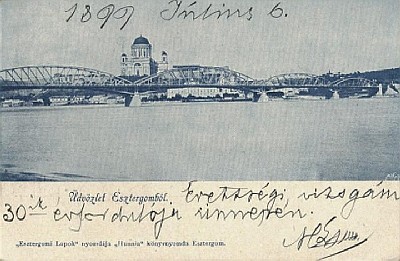 1899 Július 6.
Üdvözlet Esztergomból.
Érettségi vizsgám
30ik évfordulója ünnepén.
„Esztergomi Lapok“ nyomdája „Hunnia“ könyvnyomda Esztergom.